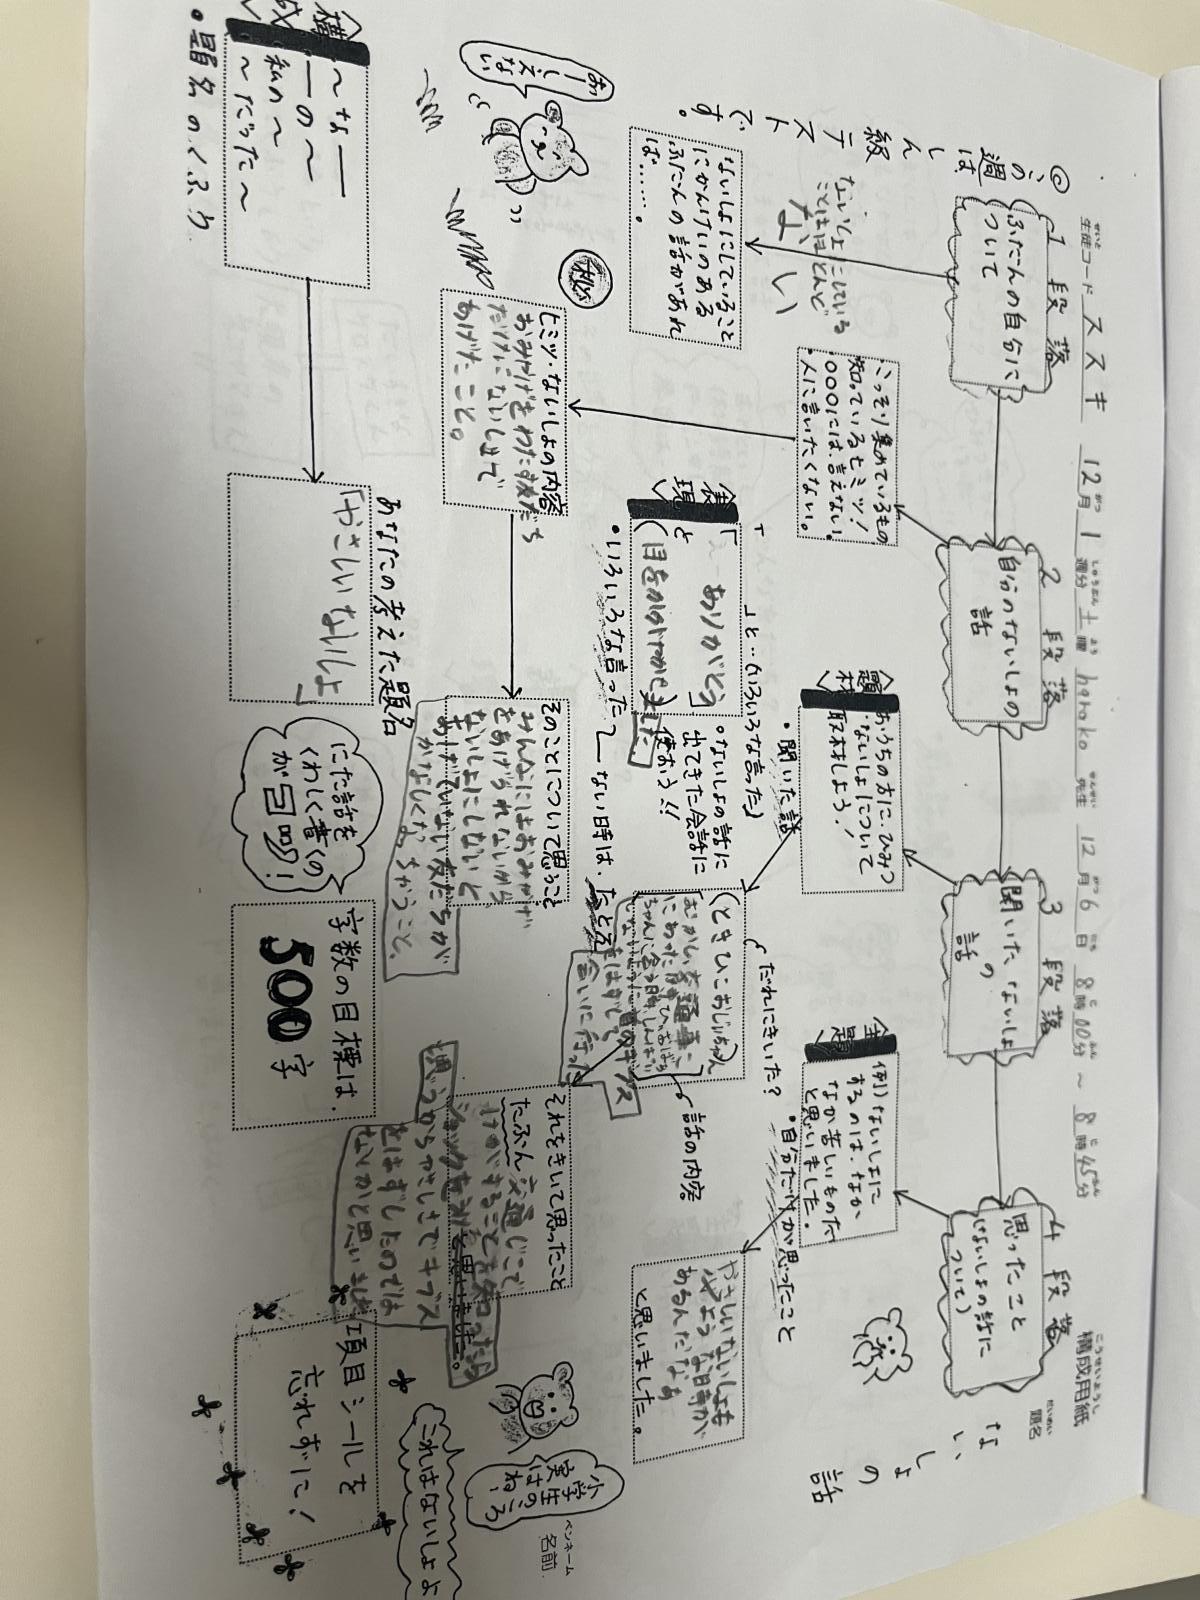 構成用紙
こうせいようし
題名
だいめい
ないしょの話
生徒コード ススキ 12月1週分 土曜 hahako先生 12月6日 8時00分～8時45分
◎この週は
しん級
テスト
です。
1段落
ふだんの自分に
ついて
ないしょにしていること
にかんけいのある
ふだんの話があれ
ば……。
ないしょにしている
ことはほとんど
ない
2段落
自分のないしょの
話
・こっそり集めているもの
・知っているヒミツ！
・〇〇〇には、言えない。
・人に言いたくない。
ヒミツ・ないしょの内容
おみやげをわたす友だち
だけにないしょで
あげたこと。
そのことについて思うこと
みんなにはおみやげ
をあげられないから
ないしょにしないと
あげていない友だちが
かなしくなっちゃうこと。
3段落
聞いたないしょ
の
話
題材
おうちの方に、ひみつ
・ないしょについて
取材しよう！
・聞いた話
だれにきいた？
(ときひこおじいちゃん)
話の内容
むかし、交通事こ
にあった時、ひいおばあ
ちゃんに会う時、しんぱい
会いに行った
それをきいて思ったこと
たぶん交通じこで
けがすることを知ったら
ショックを
思うからやさしさでギプス
をはずしたのでは
ないかと思いました
4段落
思ったこと
(ないしょの話に
ついて)
主題
例)ないしょに
するのは、なか
なか苦しいものだ
と思いました。
・自分だけが思ったこと
やさしいないしょも
ような時が
あるんだなあ
と思いました。
表現
「　」と…(いろいろな言った)
「 ありがとう」
と
(目をかがやかせました)
・いろいろな言った
ない時は、たとえ
・ないしょの話に
出てきた会話に
使おう!!
構成
～な――
――の～
私の～
～だった～
・題名のくふう
あなたの考えた題名
「やさしいないしょ」
にた話を
くわしく書くの
が
字数の目標は、
500字
項目シールを
忘れずに！
これはないしょよ
小学
生の
ころ
はね、
おしえない
ペンネーム
名前